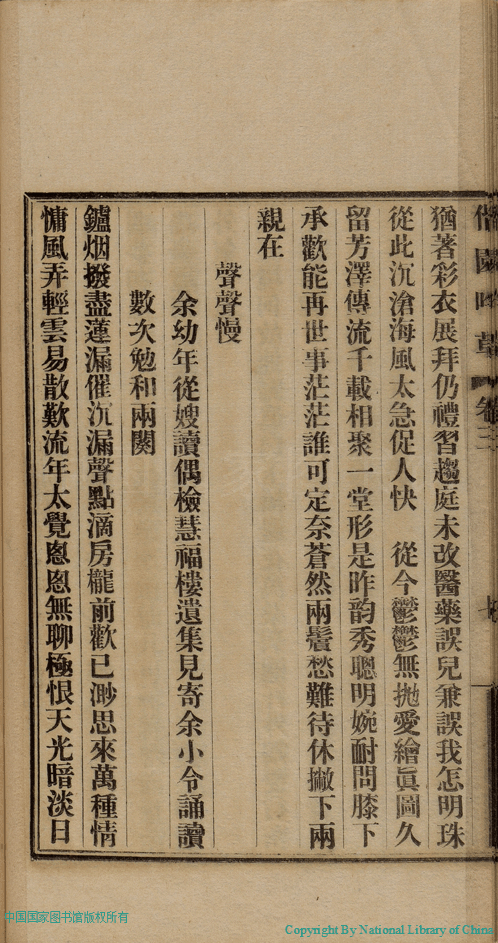 猶著彩衣展拜仍禮習趨庭未改醫藥誤兒兼誤我怎明珠
從此沉滄海風太急促人快　從今鬱鬱無拋愛繪眞圖久
留芳澤傳流千載相聚一堂形是昨韵秀聰明婉耐問膝下
承歡能再世事茫茫誰可定奈蒼然兩鬢愁難待休撇下兩
親在
聲聲慢
余幼年從嫂讀偶檢慧福樓遺集見寄余小令誦讀
數次勉和兩闋
鑪烟撥盡蓮漏催沉漏聲點滴房櫳前歡已渺思來萬種情
慵風弄輕雲易散歎流年太覺悤悤無聊極恨天光暗淡日
中国国家图书馆版权所有
Copyright By National Library of China